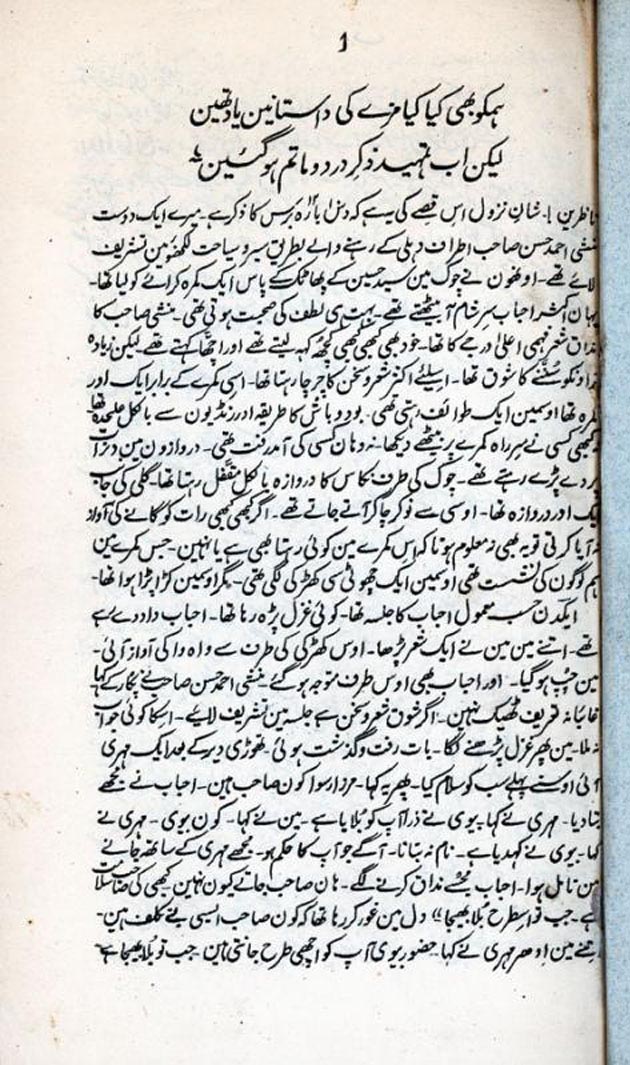 1
ہمکو بھی کیا کیا مزے کی داستانین یاد تھین
لیکن اب تمہید ذکر درد و ماتم ہو گئین
ناظرین !۔ شان نزول اس قصے کی یہ ہے کہ دس بارہ برس کا ذکر ہے۔ میرے ایک دوست
منشی احمد حسن صاحب اطراف دہلی کے رہنے والے بطریق سیر و سیاحت لکھنؤ مین تشریف
لائے تھے۔ اونھون نے چوک مین سید حسین کے پھاٹک کے پاس ایک کمرہ کرائے کو لیا تھا۔
یہان اکثر احباب سر شام آ بیٹھتے تھے۔ بہت ہی لطف کی صحبت ہوتی تھی۔ منشی صاحب کا
مذاق شعر فہمی اعلیٰ درجے کا تھا۔ خود بھی کبھی کبھی کچھ کہہ لیتے تھے اور اچھا کہتے تھے۔ لیکن زیادہ تر
اونکو سُننے کا شوق تھا۔ اسیلئے اکثر شعر و سخن کا چرچا رہتا تھا۔ اسی کمرے کے برابر ایک اور
کمرہ تھا اوسمین ایک طوائف رہتی تھی۔ بود و باش کا طریقہ اور رنڈیون سے بالکل علیحدہ تھا
نہ کبھی کسی نے سر راہ کمرے پر بیٹھے دیکھا نہ وہان کسی کی آمد رفت تھی۔ دروازون مین دن رات
پردے پڑے رہتے تھے۔ چوک کی طرف نکاس کا دروازہ بالکل مقفّل رہتا تھا۔ گلی کی جانب
ایک اور دروازہ تھا۔ اوسی سے نوکر چاکر آتے جاتے تھے۔ اگر کبھی کبھی رات کو گانے کی آواز
نہ آیا کرتی تو یہ بھی نہ معلوم ہوتا کہ اس کمرے مین کوئی رہتا بھی ہے یا نہین۔ جس کمرے مین
ہم لوگون کی نشست تھی اوسمین ایک چھوٹی سی کھڑکی لگی تھی۔ مگر اوسمین کپڑا پڑا ہوا تھا۔
ایکدن حسب معمول احباب کا جلسہ تھا۔ کوئی غزل پڑھ رہا تھا۔ احباب داد دے رہے
تھے۔ اتنے مین مین نے ایک شعر پڑھا۔ اوس کھڑکی کی طرف سے واہ وا کی آواز آئی۔
مین چُپ ہو گیا۔ اور احباب بھی اوس طرف متوجہ ہو گئے۔ منشی احمد حسن صاحب نے پکار کے کہا
غائبانہ تعریف ٹھیک نہین۔ اگر شوق شعر و سخن ہے جلسہ مین تشریف لائیے۔ اسکا کوئی جواب
نہ ملا۔ مین پھر غزل پڑھنے لگا۔ بات رفت و گذشت ہوئی۔ تھوڑی دیر کے بعد ایک مہری
آئی اوسنے پہلے سب کو سلام کیا۔ پھر یہ کہا۔ مرزا رسوا کون صاحب ہین۔ احباب نے مجھے
بتا دیا۔ مہری نے کہا۔ بیوی نے ذرا آپ کو بُلایا ہے۔ مین نے کہا۔ کون بیوی۔ مہری نے
کہا۔ بیوی نے کہدیا ہے۔ نام نہ بتانا۔ آگے جو آپ کا حکم ہو۔ مجھے مہری کے ساتھ جانے
مین تامل ہوا۔ احباب مجھسے مذاق کرنے لگے۔ ہان صاحب جاتے کیون نہین کبھی کی صاحب سلامت
ہے۔ جب تو اسطرح بُلا بھیجا“ دل مین غور کر رہا تھا کہ کون صاحب ایسی بے تکلف ہین۔
اتنے مین ادھر مہری نے کہا۔ حضور بیوی آپ کو اچھی طرح جانتی ہین۔ جب تو بُلا بھیجا ہے